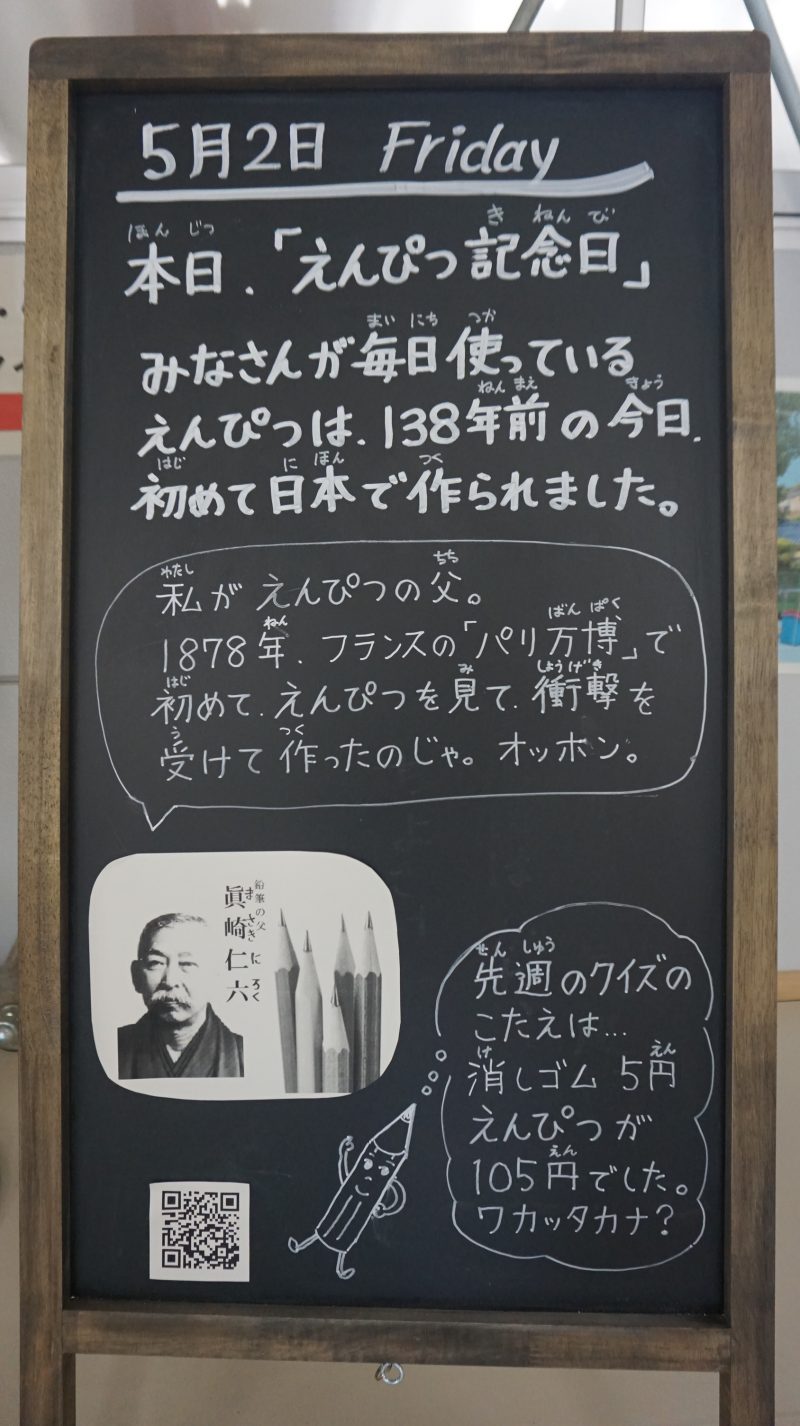 5月2日 Friday
本日、「えんぴつ記念日」
みなさんが毎日使っている
えんぴつは、138年前の今日、
初めて日本で作られました。
私がえんぴつの父。
1878年、フランスの「パリ万博」で
初めて、えんぴつを見て、衝撃を
受けて作ったのじゃ。オッホン。
鉛筆の父
眞崎仁六
先週のクイズの
こたえは…
消しゴム 5円
えんぴつが
105円でした。
ワカッタカナ?